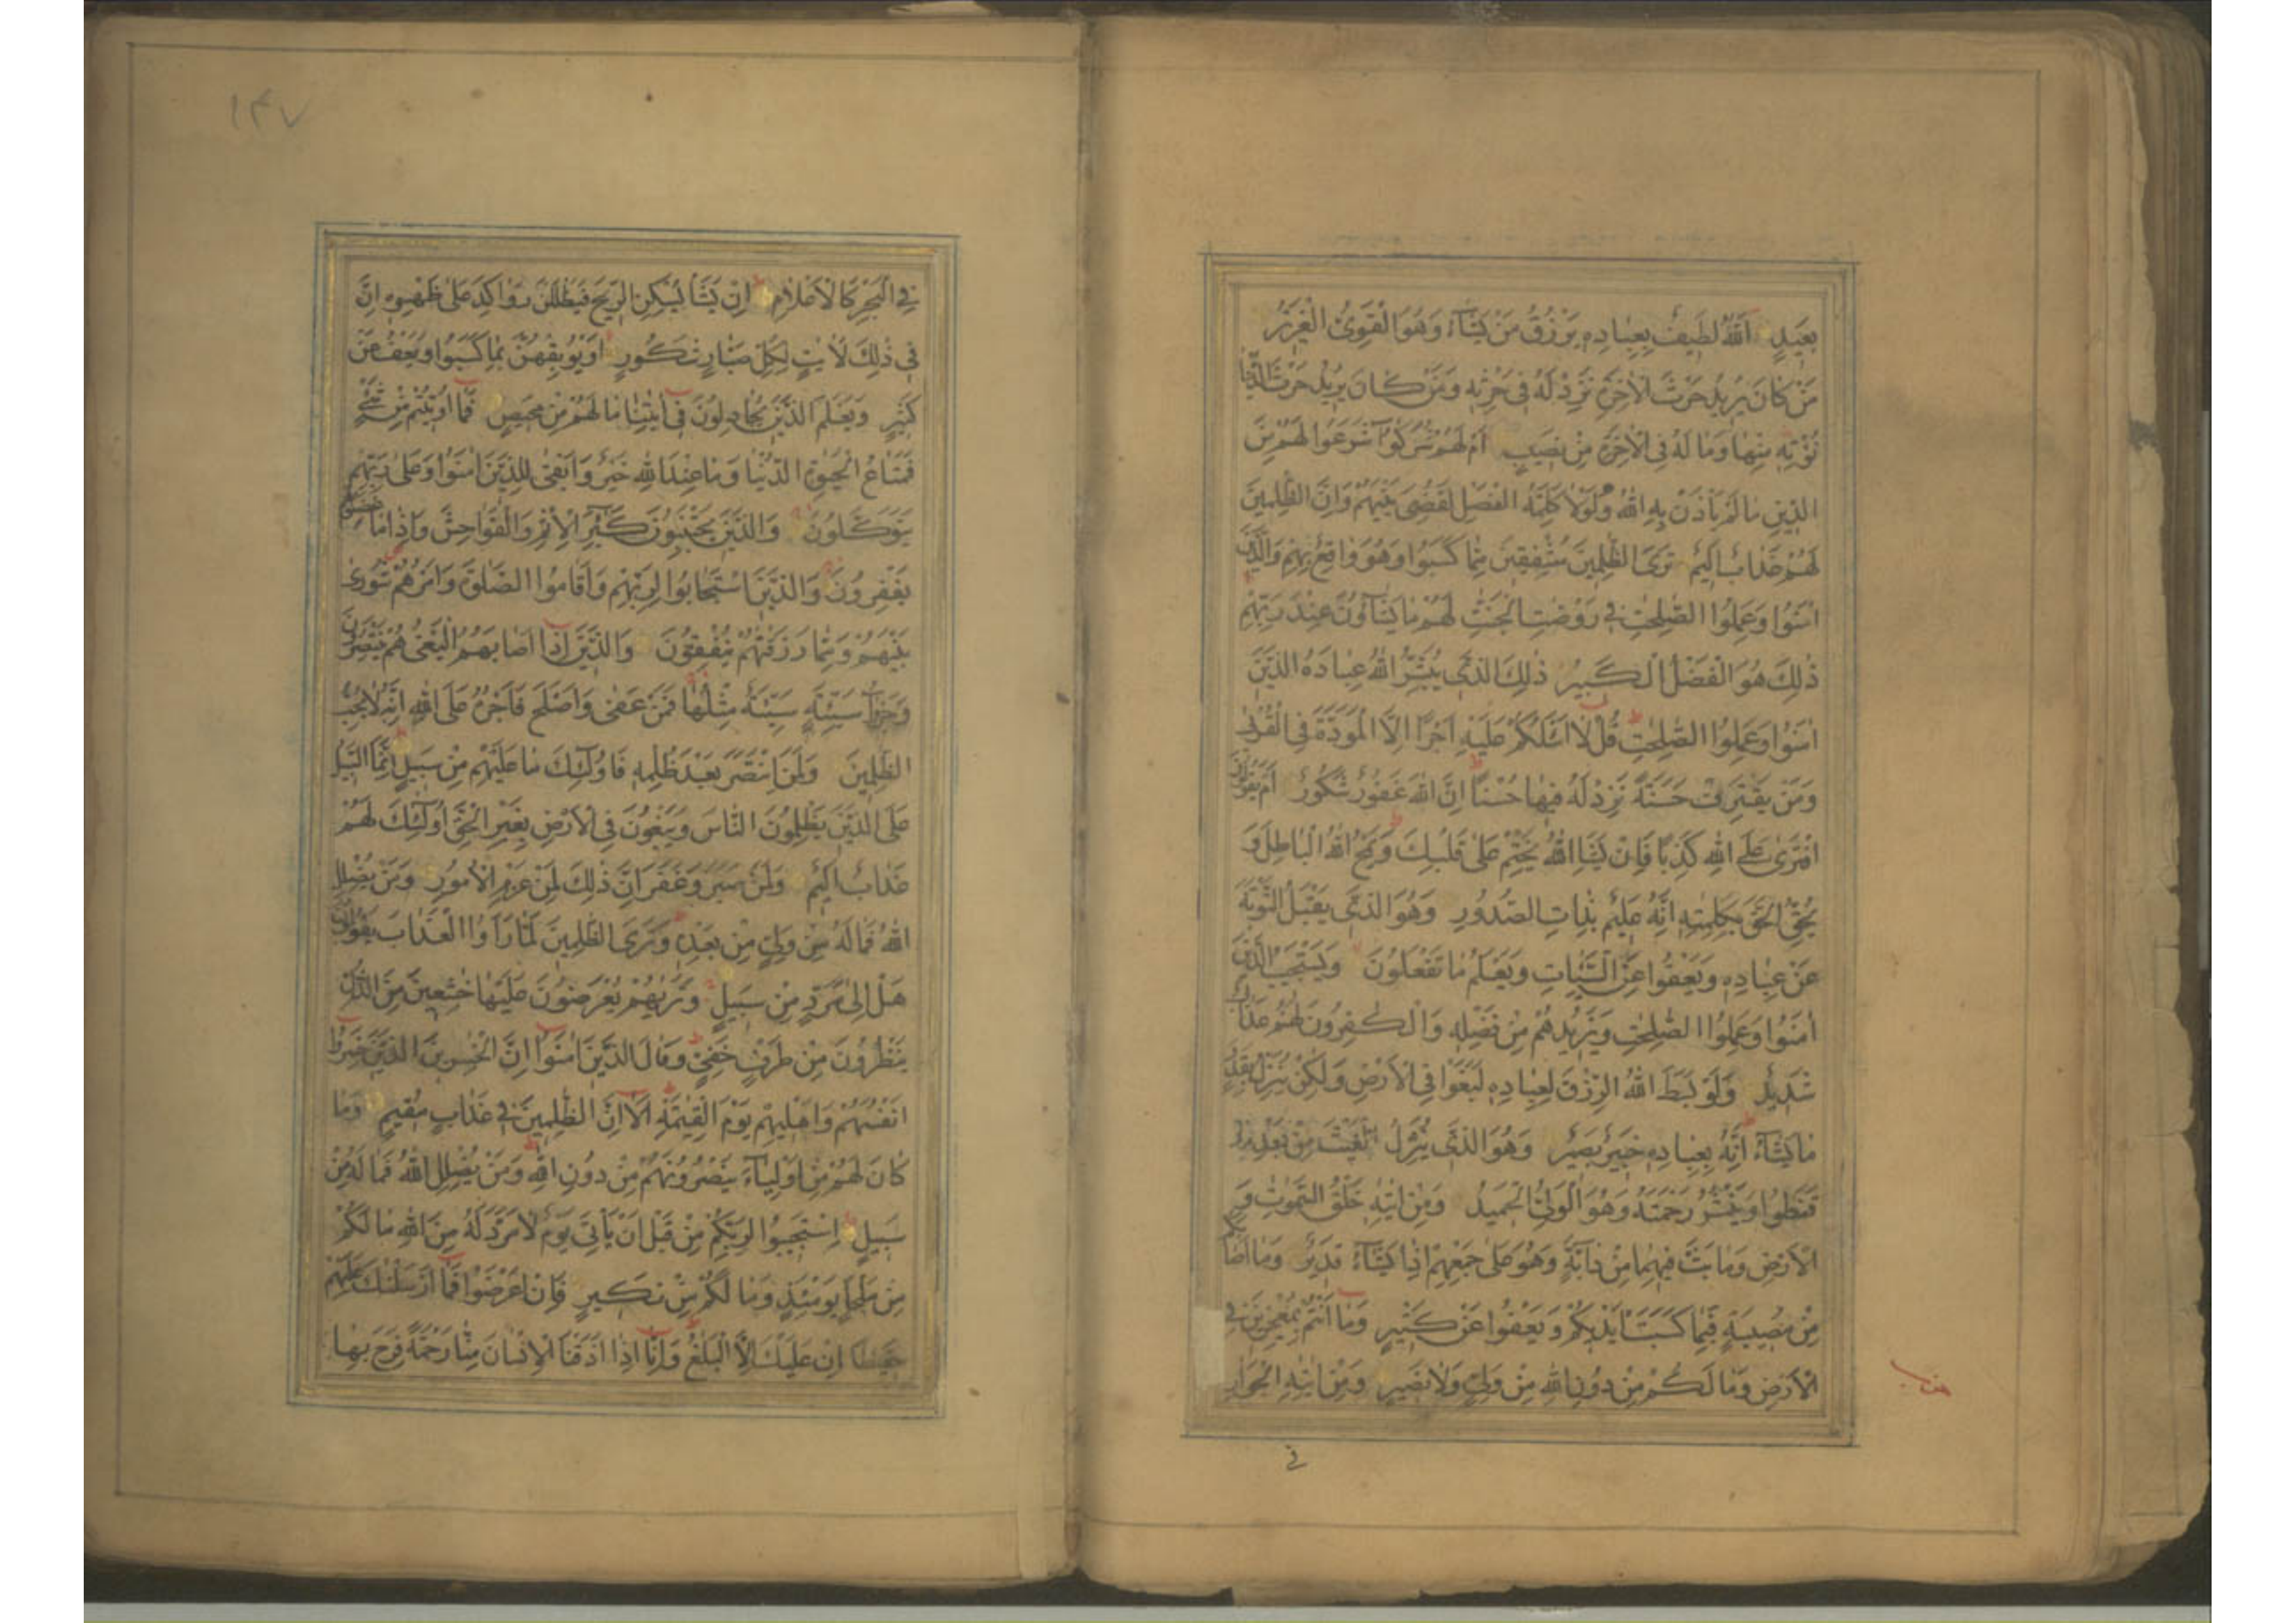 بَعيدٍ اَللّٰهُ لَطيفٌ بِعِبادِهٖ يَرْزُقُ مَنْ يَشآءُ وَهُوَ الْقَوِىُّ الْعَزيزُ
مَنْ كانَ يُريدُ حَرْثَ الْاٰخِرَةِ نَزِدْ لَهُ فى حَرْثِهٖ وَمَنْ كانَ يُريدُ حَرْثَ الدُّنْيا
نُؤْتِهٖ مِنْها وَما لَهُ فِى الْاٰخِرَةِ مِنْ نَصيبٍ اَمْ لَهُمْ شُرَكٰٓؤُا شَرَعُوا لَهُمْ مِنَ
الدّينِ ما لَمْ يَأْذَنْ بِهِ اللّٰهُ وَلَوْلا كَلِمَةُ الْفَصْلِ لَقُضِىَ بَيْنَهُمْ وَاِنَّ الظّٰلِمينَ
لَهُمْ عَذابٌ اَليمٌ تَرَى الظّٰلِمينَ مُشْفِقينَ مِمّا كَسَبُوا وَهُوَ واقِعٌ بِهِمْ وَالَّذينَ
اٰمَنُوا وَعَمِلُوا الصّٰلِحٰتِ فى رَوْضٰتِ الْجَنّٰتِ لَهُمْ ما يَشآؤُنَ عِنْدَ رَبِّهِمْ
ذٰلِكَ هُوَ الْفَضْلُ الْكَبيرُ ذٰلِكَ الَّذى يُبَشِّرُ اللّٰهُ عِبادَهُ الَّذينَ
اٰمَنُوا وَعَمِلُوا الصّٰلِحٰتِ قُلْ لا اَسْئَلُكُمْ عَلَيْهِ اَجْرًا اِلَّا الْمَوَدَّةَ فِى الْقُرْبٰى
وَمَنْ يَقْتَرِفْ حَسَنَةً نَزِدْ لَهُ فيها حُسْنًا اِنَّ اللّٰهَ غَفُورٌ شَكُورٌ اَمْ يَقُولُونَ
افْتَرٰى عَلَى اللّٰهِ كَذِبًا فَاِنْ يَشَاِ اللّٰهُ يَخْتِمْ عَلٰى قَلْبِكَ وَيَمْحُ اللّٰهُ الْباطِلَ وَ
يُحِقُّ الْحَقَّ بِكَلِمٰتِهٖ اِنَّهُ عَليمٌ بِذاتِ الصُّدُورِ وَهُوَ الَّذى يَقْبَلُ التَّوْبَةَ
عَنْ عِبادِهٖ وَيَعْفُوا عَنِ السَّيِّاٰتِ وَيَعْلَمُ ما تَفْعَلُونَ وَيَسْتَجيبُ الَّذينَ
اٰمَنُوا وَعَمِلُوا الصّٰلِحٰتِ وَيَزيدُهُمْ مِنْ فَضْلِهٖ وَالْكٰفِرُونَ لَهُمْ عَذابٌ
شَديدٌ وَلَوْ بَسَطَ اللّٰهُ الرِّزْقَ لِعِبادِهٖ لَبَغَوْا فِى الْاَرْضِ وَلٰكِنْ يُنَزِّلُ بِقَدَرٍ
ما يَشآءُ اِنَّهُ بِعِبادِهٖ خَبيرٌ بَصيرٌ وَهُوَ الَّذى يُنَزِّلُ الْغَيْثَ مِنْ بَعْدِ ما
قَنَطُوا وَيَنْشُرُ رَحْمَتَهُ وَهُوَ الْوَلِىُّ الْحَميدُ وَمِنْ اٰيٰتِهٖ خَلْقُ السَّمٰوٰتِ وَ
الْاَرْضِ وَما بَثَّ فيهِما مِنْ دآبَّةٍ وَهُوَ عَلٰى جَمْعِهِمْ اِذا يَشآءُ قَديرٌ وَما اَصابَكُمْ
مِنْ مُصيبَةٍ فَبِما كَسَبَتْ اَيْديكُمْ وَيَعْفُوا عَنْ كَثيرٍ وَما اَنْتُمْ بِمُعْجِزينَ فِى
الْاَرْضِ وَما لَكُمْ مِنْ دُونِ اللّٰهِ مِنْ وَلِىٍّ وَلا نَصيرٍ وَمِنْ اٰيٰتِهِ الْجَوارِ
فى
١٤٧
فِى الْبَحْرِ كَالْاَعْلامِ اِنْ يَشَأْ يُسْكِنِ الرّيحَ فَيَظْلَلْنَ رَواكِدَ عَلٰى ظَهْرِهٖ اِنَّ
فى ذٰلِكَ لَاٰيٰتٍ لِكُلِّ صَبّارٍ شَكُورٍ اَوْ يُوبِقْهُنَّ بِما كَسَبُوا وَيَعْفُ عَنْ
كَثيرٍ وَيَعْلَمَ الَّذينَ يُجادِلُونَ فى اٰيٰتِنا ما لَهُمْ مِنْ مَحيصٍ فَما اُوتيتُمْ مِنْ شَىْءٍ
فَمَتاعُ الْحَيٰوةِ الدُّنْيا وَما عِنْدَ اللّٰهِ خَيْرٌ وَاَبْقٰى لِلَّذينَ اٰمَنُوا وَعَلٰى رَبِّهِمْ
يَتَوَكَّلُونَ وَالَّذينَ يَجْتَنِبُونَ كَبٰٓئِرَ الْاِثْمِ وَالْفَواحِشَ وَاِذا ما غَضِبُوا هُمْ
يَغْفِرُونَ وَالَّذينَ اسْتَجابُوا لِرَبِّهِمْ وَاَقامُوا الصَّلٰوةَ وَاَمْرُهُمْ شُورٰى
بَيْنَهُمْ وَمِمّا رَزَقْنٰهُمْ يُنْفِقُونَ وَالَّذينَ اِذا اَصابَهُمُ الْبَغْىُ هُمْ يَنْتَصِرُونَ
وَجَزٰٓؤُا سَيِّئَةٍ سَيِّئَةٌ مِثْلُها فَمَنْ عَفٰى وَاَصْلَحَ فَاَجْرُهُ عَلَى اللّٰهِ اِنَّهُ لا يُحِبُّ
الظّٰلِمينَ وَلَمَنِ انْتَصَرَ بَعْدَ ظُلْمِهٖ فَاُولٰٓئِكَ ما عَلَيْهِمْ مِنْ سَبيلٍ اِنَّمَا السَّبيلُ
عَلَى الَّذينَ يَظْلِمُونَ النّاسَ وَيَبْغُونَ فِى الْاَرْضِ بِغَيْرِ الْحَقِّ اُولٰٓئِكَ لَهُمْ
عَذابٌ اَليمٌ وَلَمَنْ صَبَرَ وَغَفَرَ اِنَّ ذٰلِكَ لَمِنْ عَزْمِ الْاُمُورِ وَمَنْ يُضْلِلِ
اللّٰهُ فَما لَهُ مِنْ وَلِىٍّ مِنْ بَعْدِهٖ وَتَرَى الظّٰلِمينَ لَمّا رَاَوُا الْعَذابَ يَقُولُونَ
هَلْ اِلٰى مَرَدٍّ مِنْ سَبيلٍ وَتَرٰيهُمْ يُعْرَضُونَ عَلَيْها خٰشِعينَ مِنَ الذُّلِّ
يَنْظُرُونَ مِنْ طَرْفٍ خَفِىٍّ وَقالَ الَّذينَ اٰمَنُوا اِنَّ الْخٰسِرينَ الَّذينَ خَسِرُوا
اَنْفُسَهُمْ وَاَهْليهِمْ يَوْمَ الْقِيٰمَةِ اَلا اِنَّ الظّٰلِمينَ فى عَذابٍ مُقيمٍ وَما
كانَ لَهُمْ مِنْ اَوْلِيآءَ يَنْصُرُونَهُمْ مِنْ دُونِ اللّٰهِ وَمَنْ يُضْلِلِ اللّٰهُ فَما لَهُ مِنْ
سَبيلٍ اِسْتَجيبُوا لِرَبِّكُمْ مِنْ قَبْلِ اَنْ يَأْتِىَ يَوْمٌ لا مَرَدَّ لَهُ مِنَ اللّٰهِ ما لَكُمْ
مِنْ مَلْجَاٍ يَوْمَئِذٍ وَما لَكُمْ مِنْ نَكيرٍ فَاِنْ اَعْرَضُوا فَما اَرْسَلْنٰكَ عَلَيْهِمْ
حَفيظًا اِنْ عَلَيْكَ اِلَّا الْبَلٰغُ وَاِنّا اِذا اَذَقْنَا الْاِنْسانَ مِنّا رَحْمَةً فَرِحَ بِها